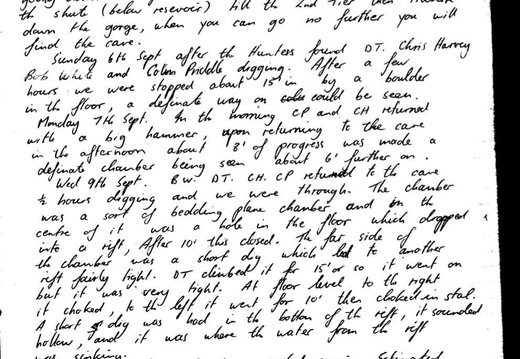 th shute (below resevoir) till the 2nd Tier then
down the gorge, when you can go no further you will
find the cave.
Sunday 6th Sept after the Hunters found DT. Chris Harvey
Bob White and Colin Priddle digging. After a few
hours we were stopped about 15' in by a boulder
in the floor, a definate way on could be seen.
Monday 7th Sept. In the morning CP and CH returned
with a big hammer, upon returning to the cave
in the afternoon about 8' of progress was made a
definate chamber being seen about 6' further on.
Wed 9th Sept. BW. DT. CH. CP returned to the cave
½ hours digging and we were through. The chamber
was a sort of bedding plane chamber and in the
centre of it was a hole in the floor which dropped
into a rift, After 10' this closed. The far side of
the chamber was a short dig which led to another
rift fairly tight. DT climbed it for 15' or so it went on
but it was very tight. At floor level to the right
it choked, to the left it went for 10' then choked in stal.
A short dig was had in the bottom of the rift, it sounded
hollow, and it was where the water from the rift
was sinking.